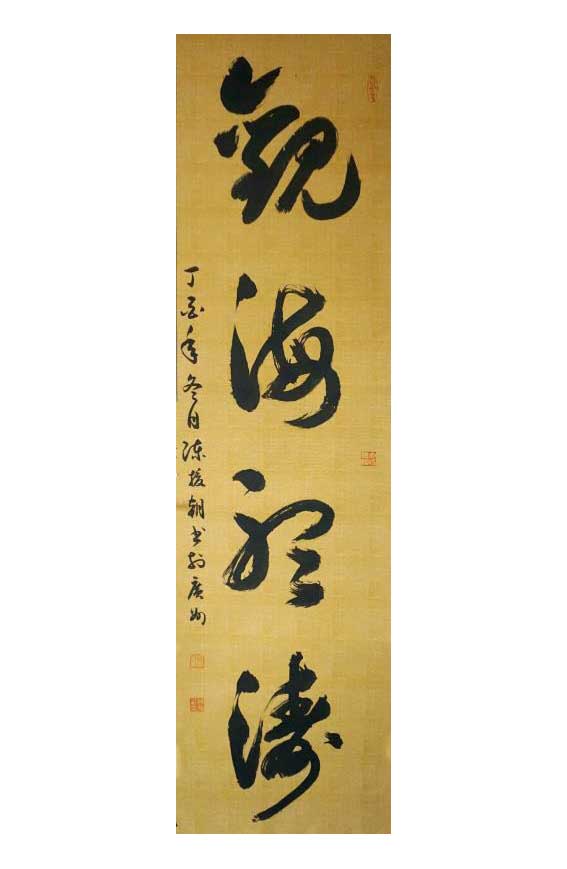 觀海聽濤
丁酉年冬月陳援朝书於廣州